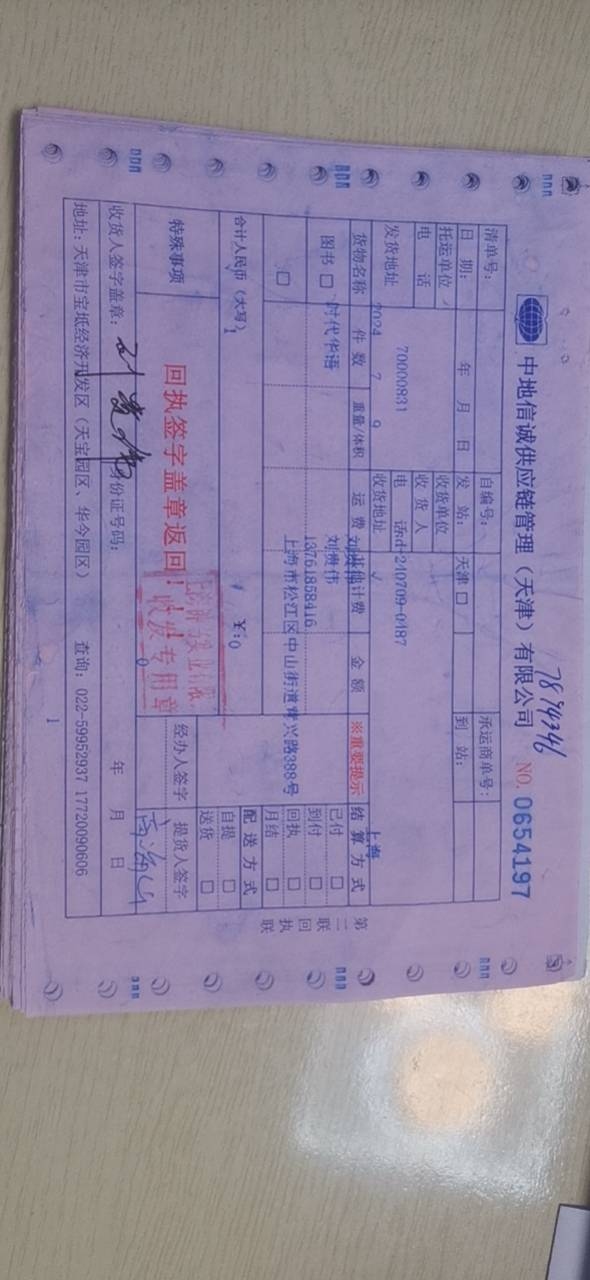 中地信诚供应链管理（天津）有限公司
7894346
NO. 0654197
清单号：
自编号：
承运商单号：
日 期：
年 月 日
发 站：
天津 □
到 站：
2024 7 9
上海
托运单位
收货单位
70000831
nd-240709-0487
电 话
收 货 人
发货地址
电 话
收货地址
时代华语
刘贵伟
13761858416
上海市松江区中山街道茸兴路388号
货物名称
件 数
重量/体积
运 费
其他计费
金 额
※重要提示
结 算 方 式
图书 □
已付 □
□
到付 □
回执 □
月结 □
1
合计人民币（大写）
￥:0
配 送 方 式
自提 □
送货 □
特殊事项
回执签字盖章返回！
收发专用章
0
经办人签字
提货人签字
收货人签字盖章：
身份证号码：
年 月 日
地址：天津市宝坻经济开发区（天宝园区、华今园区）
查询：022-59952937 17720090606
1
第二联 回执联